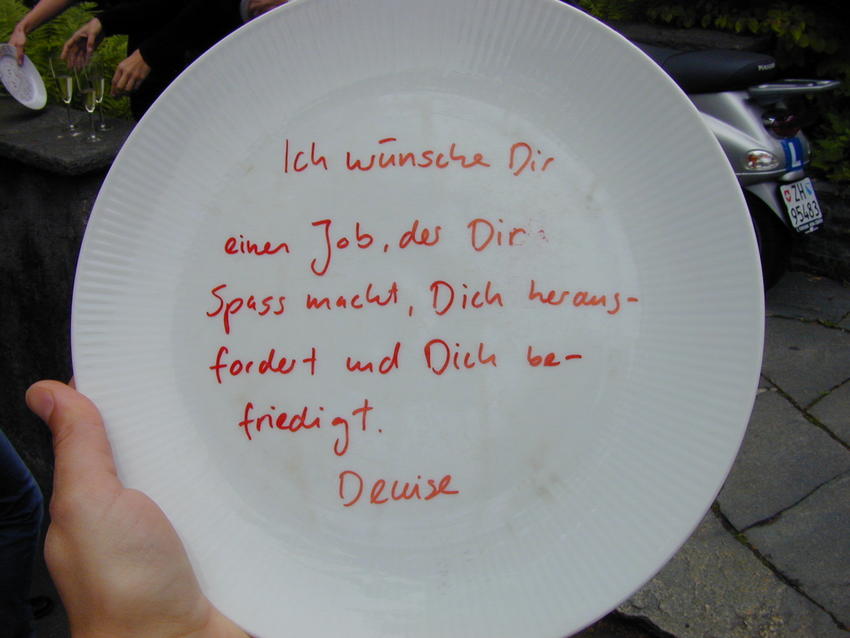 Ich wünsche Dir
einen Job, der Dir
Spass macht, Dich heraus-
fordert und Dich be-
friedigt.
Denise
ZH
95483